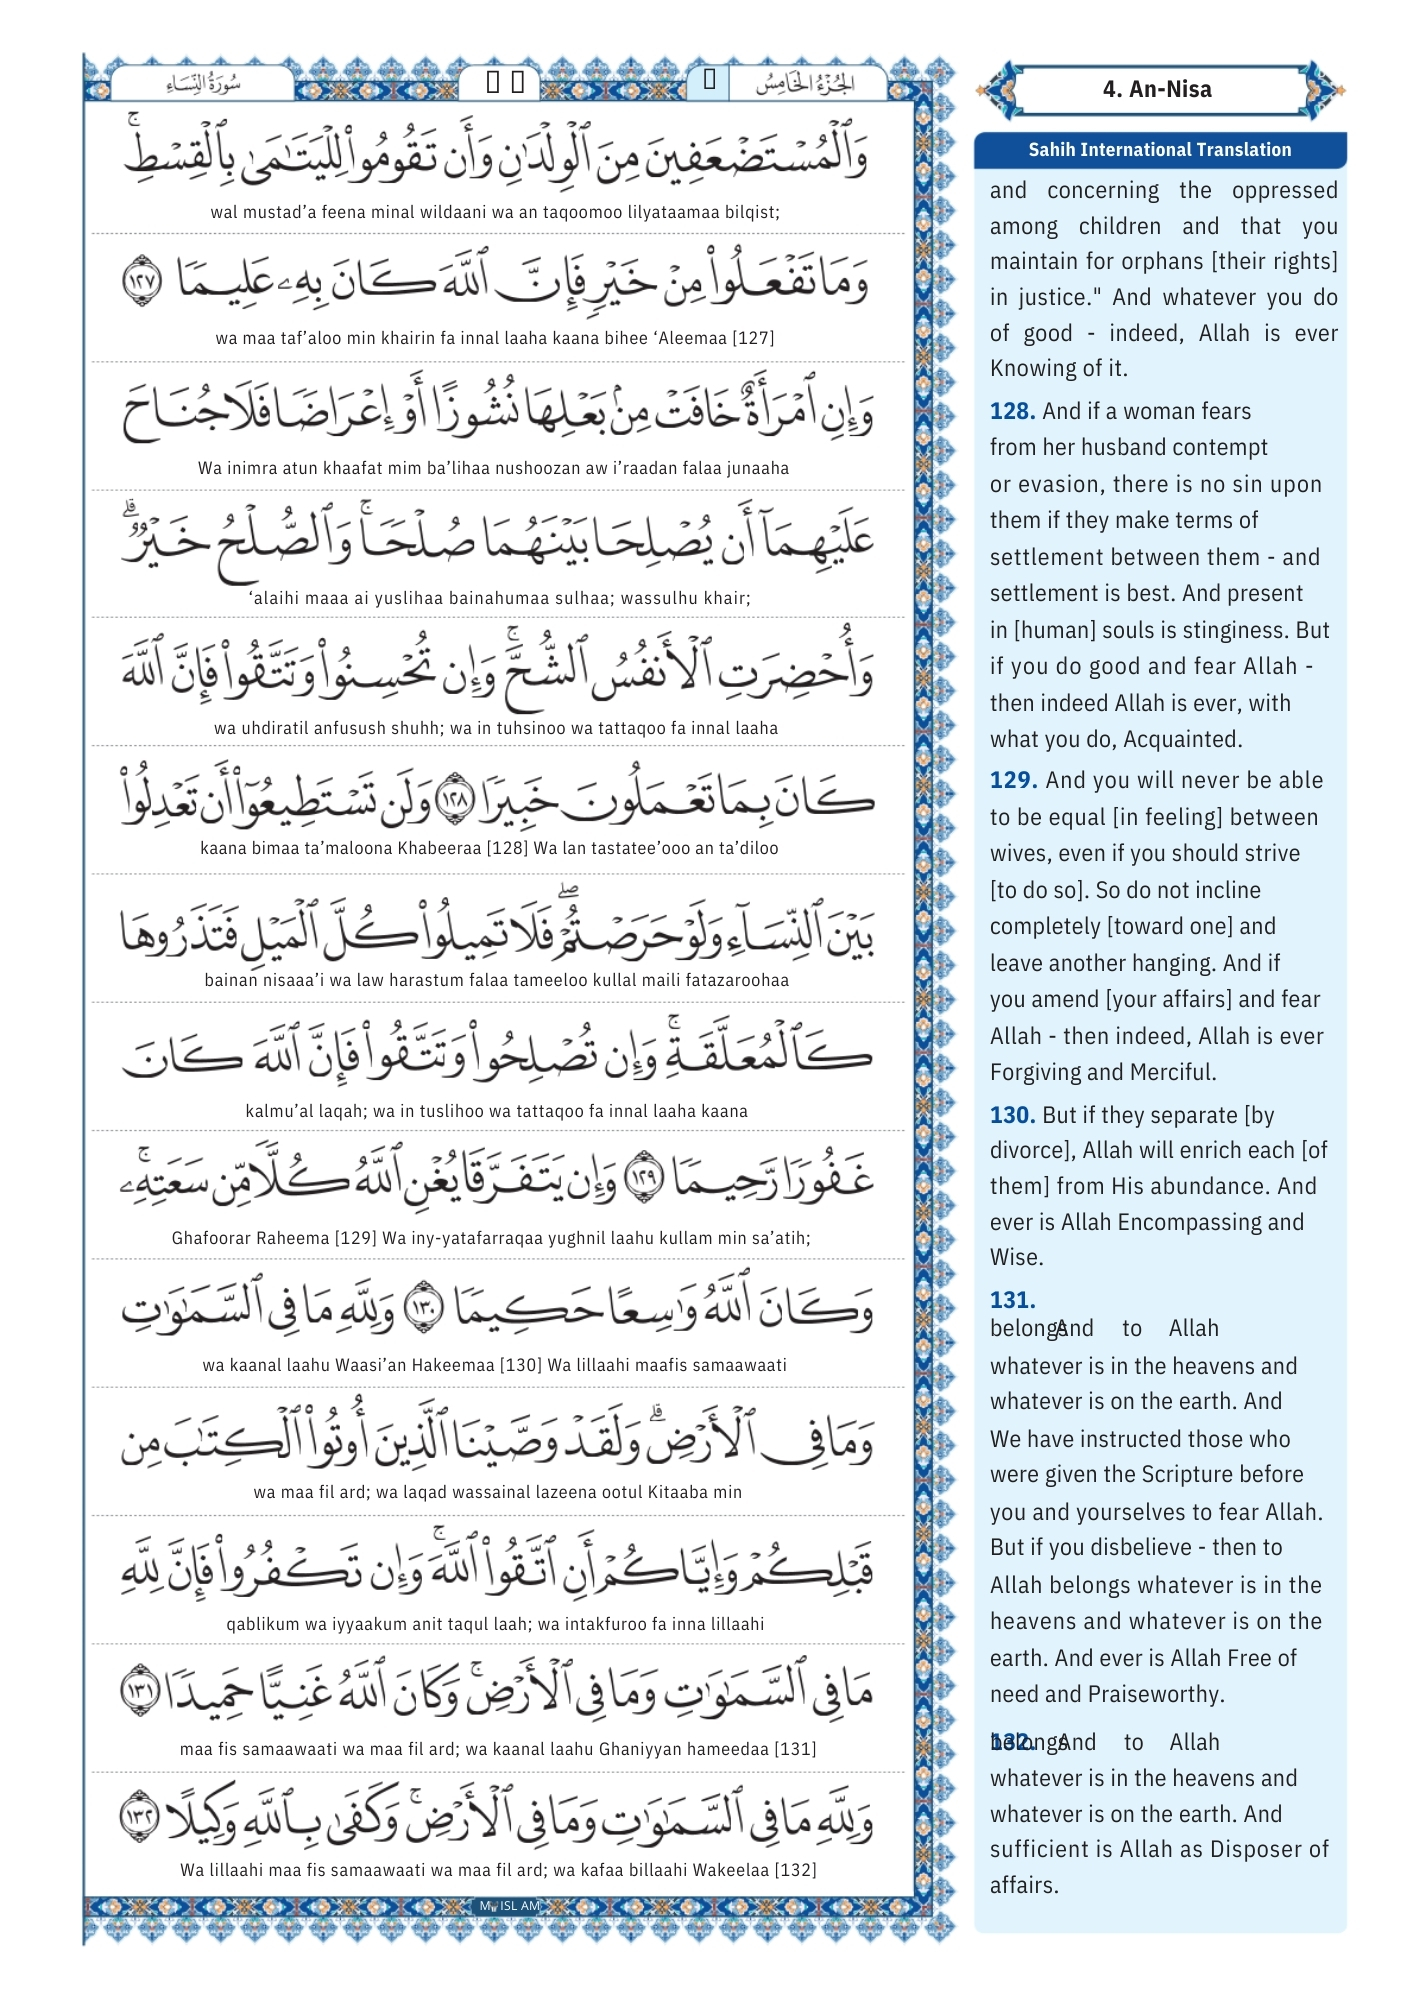 سُورَةُ النِّسَاءِ
الجُزْءُ الخَامِسُ
وَٱلْمُسْتَضْعَفِينَ مِنَ ٱلْوِلْدَٰنِ وَأَن تَقُومُوا۟ لِلْيَتَٰمَىٰ بِٱلْقِسْطِ ۚ
wal mustad’a feena minal wildaani wa an taqoomoo lilyataamaa bilqist;
وَمَا تَفْعَلُوا۟ مِنْ خَيْرٍ فَإِنَّ ٱللَّهَ كَانَ بِهِۦ عَلِيمًا ١٢٧
wa maa taf’aloo min khairin fa innal laaha kaana bihee ‘Aleemaa [127]
وَإِنِ ٱمْرَأَةٌ خَافَتْ مِنۢ بَعْلِهَا نُشُوزًا أَوْ إِعْرَاضًا فَلَا جُنَاحَ
Wa inimra atun khaafat mim ba’lihaa nushoozan aw i’raadan falaa junaaha
عَلَيْهِمَآ أَن يُصْلِحَا بَيْنَهُمَا صُلْحًا ۚ وَٱلصُّلْحُ خَيْرٌ ۗ
‘alaihi maaa ai yuslihaa bainahumaa sulhaa; wassulhu khair;
وَأُحْضِرَتِ ٱلْأَنفُسُ ٱلشُّحَّ ۚ وَإِن تُحْسِنُوا۟ وَتَتَّقُوا۟ فَإِنَّ ٱللَّهَ
wa uhdiratil anfusush shuhh; wa in tuhsinoo wa tattaqoo fa innal laaha
كَانَ بِمَا تَعْمَلُونَ خَبِيرًا ١٢٨ وَلَن تَسْتَطِيعُوٓا۟ أَن تَعْدِلُوا۟
kaana bimaa ta’maloona Khabeeraa [128] Wa lan tastatee’ooo an ta’diloo
بَيْنَ ٱلنِّسَآءِ وَلَوْ حَرَصْتُمْ ۖ فَلَا تَمِيلُوا۟ كُلَّ ٱلْمَيْلِ فَتَذَرُوهَا
bainan nisaaa’i wa law harastum falaa tameeloo kullal maili fatazaroohaa
كَٱلْمُعَلَّقَةِ ۚ وَإِن تُصْلِحُوا۟ وَتَتَّقُوا۟ فَإِنَّ ٱللَّهَ كَانَ
kalmu’al laqah; wa in tuslihoo wa tattaqoo fa innal laaha kaana
غَفُورًا رَّحِيمًا ١٢٩ وَإِن يَتَفَرَّقَا يُغْنِ ٱللَّهُ كُلًّا مِّن سَعَتِهِۦ ۚ
Ghafoorar Raheema [129] Wa iny-yatafarraqaa yughnil laahu kullam min sa’atih;
وَكَانَ ٱللَّهُ وَٰسِعًا حَكِيمًا ١٣٠ وَلِلَّهِ مَا فِى ٱلسَّمَٰوَٰتِ
wa kaanal laahu Waasi’an Hakeemaa [130] Wa lillaahi maafis samaawaati
وَمَا فِى ٱلْأَرْضِ ۗ وَلَقَدْ وَصَّيْنَا ٱلَّذِينَ أُوتُوا۟ ٱلْكِتَٰبَ مِن
wa maa fil ard; wa laqad wassainal lazeena ootul Kitaaba min
قَبْلِكُمْ وَإِيَّاكُمْ أَنِ ٱتَّقُوا۟ ٱللَّهَ ۚ وَإِن تَكْفُرُوا۟ فَإِنَّ لِلَّهِ
qablikum wa iyyaakum anit taqul laah; wa intakfuroo fa inna lillaahi
مَا فِى ٱلسَّمَٰوَٰتِ وَمَا فِى ٱلْأَرْضِ ۚ وَكَانَ ٱللَّهُ غَنِيًّا حَمِيدًا ١٣١
maa fis samaawaati wa maa fil ard; wa kaanal laahu Ghaniyyan hameedaa [131]
وَلِلَّهِ مَا فِى ٱلسَّمَٰوَٰتِ وَمَا فِى ٱلْأَرْضِ ۚ وَكَفَىٰ بِٱللَّهِ وَكِيلًا ١٣٢
Wa lillaahi maa fis samaawaati wa maa fil ard; wa kafaa billaahi Wakeelaa [132]
4. An-Nisa
Sahih International Translation
and concerning the oppressed
among children and that you
maintain for orphans [their rights]
in justice." And whatever you do
of good - indeed, Allah is ever
Knowing of it.
128. And if a woman fears
from her husband contempt
or evasion, there is no sin upon
them if they make terms of
settlement between them - and
settlement is best. And present
in [human] souls is stinginess. But
if you do good and fear Allah -
then indeed Allah is ever, with
what you do, Acquainted.
129. And you will never be able
to be equal [in feeling] between
wives, even if you should strive
[to do so]. So do not incline
completely [toward one] and
leave another hanging. And if
you amend [your affairs] and fear
Allah - then indeed, Allah is ever
Forgiving and Merciful.
130. But if they separate [by
divorce], Allah will enrich each [of
them] from His abundance. And
ever is Allah Encompassing and
Wise.
131.
belongs And to Allah
whatever is in the heavens and
whatever is on the earth. And
We have instructed those who
were given the Scripture before
you and yourselves to fear Allah.
But if you disbelieve - then to
Allah belongs whatever is in the
heavens and whatever is on the
earth. And ever is Allah Free of
need and Praiseworthy.
132. belongs And to Allah
whatever is in the heavens and
whatever is on the earth. And
sufficient is Allah as Disposer of
affairs.